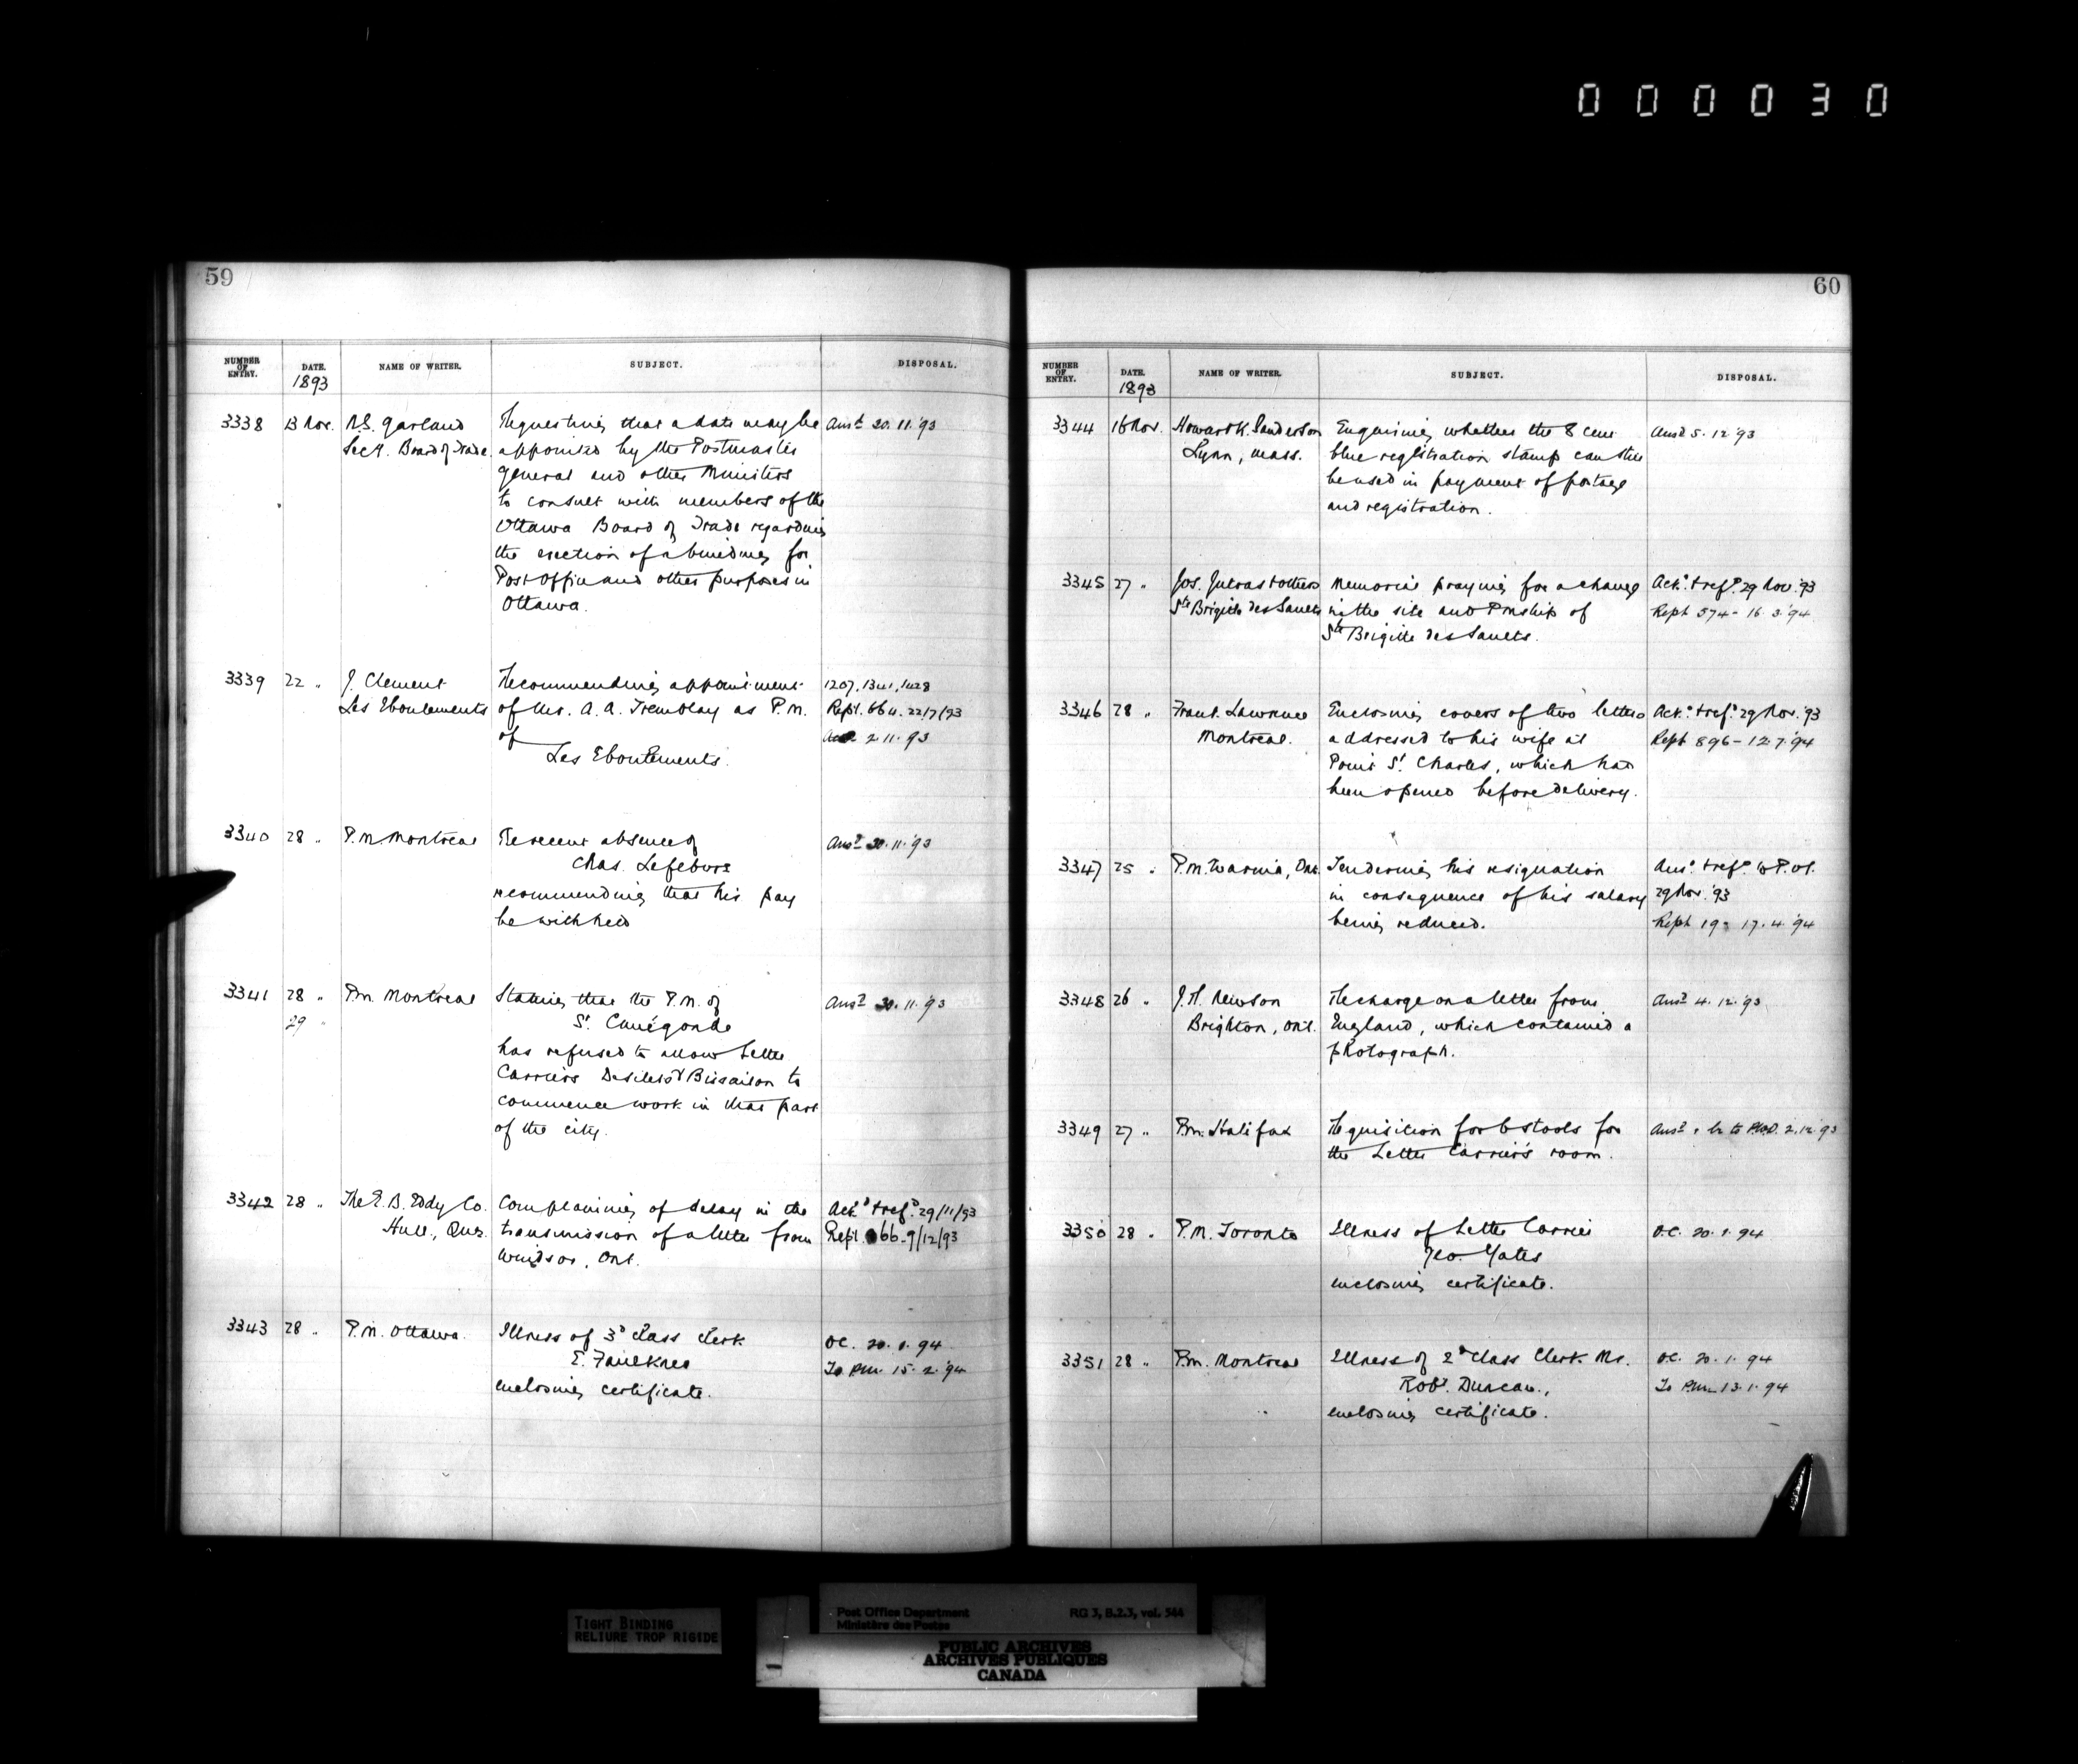 000030
59
NUMBER OF ENTRY. DATE. NAME OF WRITER. SUBJECT. DISPOSAL.
1893
3338 13 Nov. N.S. Garland Requesting that a date may be Ansd. 20.11.'93
Secy. Board of Trade. appointed by the Postmaster
General and other Ministers
to consult with members of the
Ottawa Board of Trade regarding
the erection of a building for
Post Office and other purposes in
Ottawa.
3339 22 " J. Clement Recommending appointment 1207, 1341, 1428
Les Eboulements of Mr. A. A. Tremblay as P.M. Rept. 664. 22/7/93
of 2.11.93
Les Eboulements.
3340 28 " P.M. Montreal Re recent absence of Ansd. 30.11.'93
Chas. Lefebvre
recommending that his pay
be withheld
3341 28 " P.M. Montreal Stating that the P.M. of Ansd. 30.11.'93
29 " St. Cunégonde
has refused to allow Letter
Carriers Desilets & Bissaison to
commence work in that part
of the city.
3342 28 " The E. B. Eddy Co. Complaining of delay in the Ackd. & refd. 29/11/93
Hull, Que. transmission of a letter from Rept. 66 - 9/12/93
Windsor, Ont.
3343 28 " P.M. Ottawa. Illness of 3d class clerk O.C. 20.1.94
E. Faulkner To P.M. 15.2.'94
enclosing certificate.
60
NUMBER OF ENTRY. DATE. NAME OF WRITER. SUBJECT. DISPOSAL.
1893
3344 16 Nov. Howard K. Sanderson Enquiring whether the 8 cent Ansd. 5.12.'93
Lynn, Mass. blue registration stamp can still
be used in payment of postage
and registration.
3345 27 " Jos. Jutras & others Memorial praying for a change Ackd. & refd. 29 Nov. '93
Ste Brigitte des Saults in the site and Pmship of Rept 574 - 16.3.'94
Ste Brigitte des Saults.
3346 28 " Frank Lawrence Enclosing covers of two letters Ackd. & refd. 29 Nov. '93
Montreal. addressed to his wife at Rept 896 - 12.7.'94
Point St. Charles, which had
been opened before delivery.
3347 25 " P.M. Ont. Tendering his resignation Ansd. & refd. to P.O.I.
in consequence of his salary 29 Nov. '93
being reduced. Rept 19 - 17.4.'94
3348 26 " J. H. Newson Re charge on a letter from Ansd. 4.12.'93
Brighton, Ont. England, which contained a
photograph.
3349 27 " P.M. Halifax Requisition for 6 stools for Ansd. 2.12.93
the Letter Carriers room.
3350 28 " P.M. Toronto Illness of Letter Carrier O.C. 20.1.94
Geo. Yates
enclosing certificate.
3351 28 " P.M. Montreal Illness of 2d Class Clerk Mr. O.C. 20.1.94
Robt. Duncan, To P.M. 13.1.94
enclosing certificate.
TIGHT BINDING
RELIURE TROP RIGIDE
Post Office Department RG 3, B.2.3, vol. 544
Ministère des Postes
PUBLIC ARCHIVES
ARCHIVES PUBLIQUES
CANADA